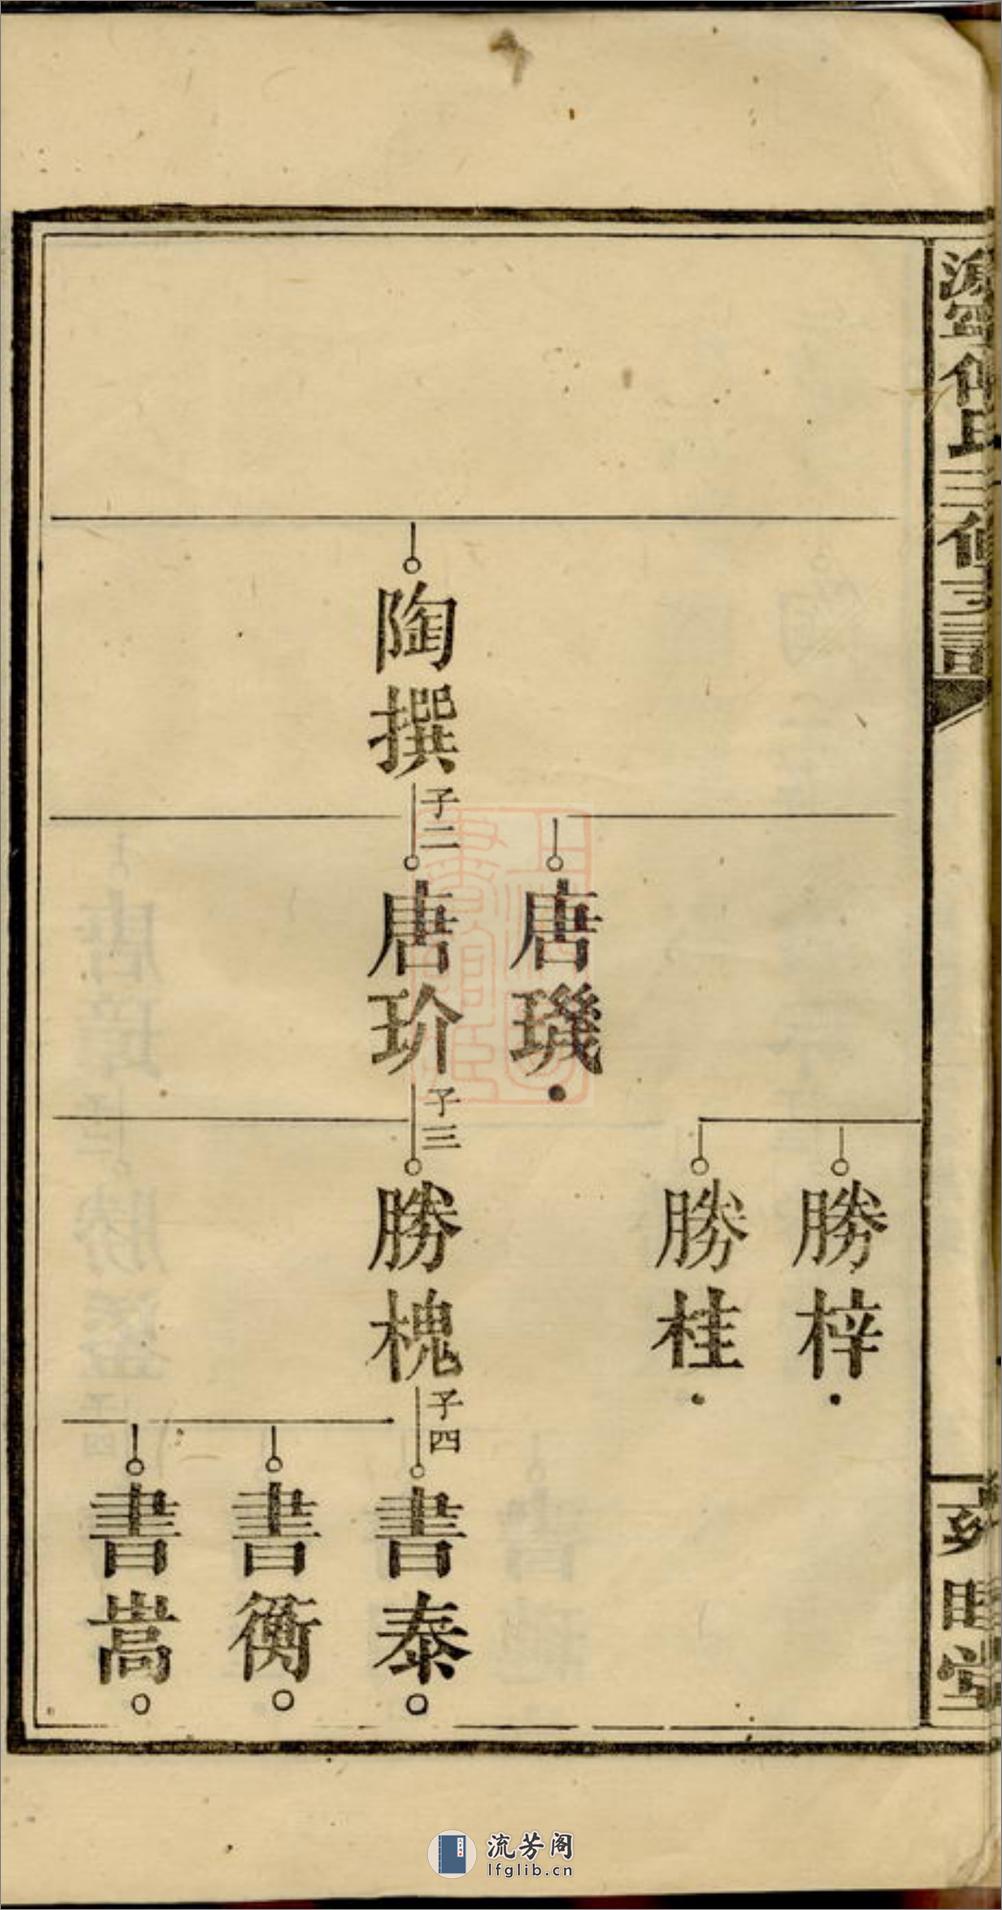 傅氏三修支譜
睦堂
勝梓
勝桂
唐璣
陶撰
子二
唐玠
子三
勝槐
子四
書泰
書衡
書嵩
流芳阁
lfglib.cn